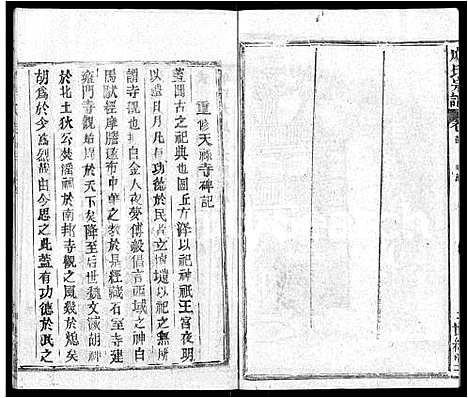 重修天祿寺碑記
蓋聞古之祀典也圜丘方澤以祀神祇王宮夜明
以禋日月凡有功德於民者立壝以祀之無所
謂寺觀也自金人夜夢傅毅倡言西域之神白
馬馱經摩騰遂布中華之教於是經藏石室寺建
雍門寺觀始此於天下矣降至後世魏文滅胡神
於北土狄公焚淫祠於南邦寺觀之風幾於熄矣
胡為於今為烈哉由今思之此蓋有功德於民之
氏宗譜